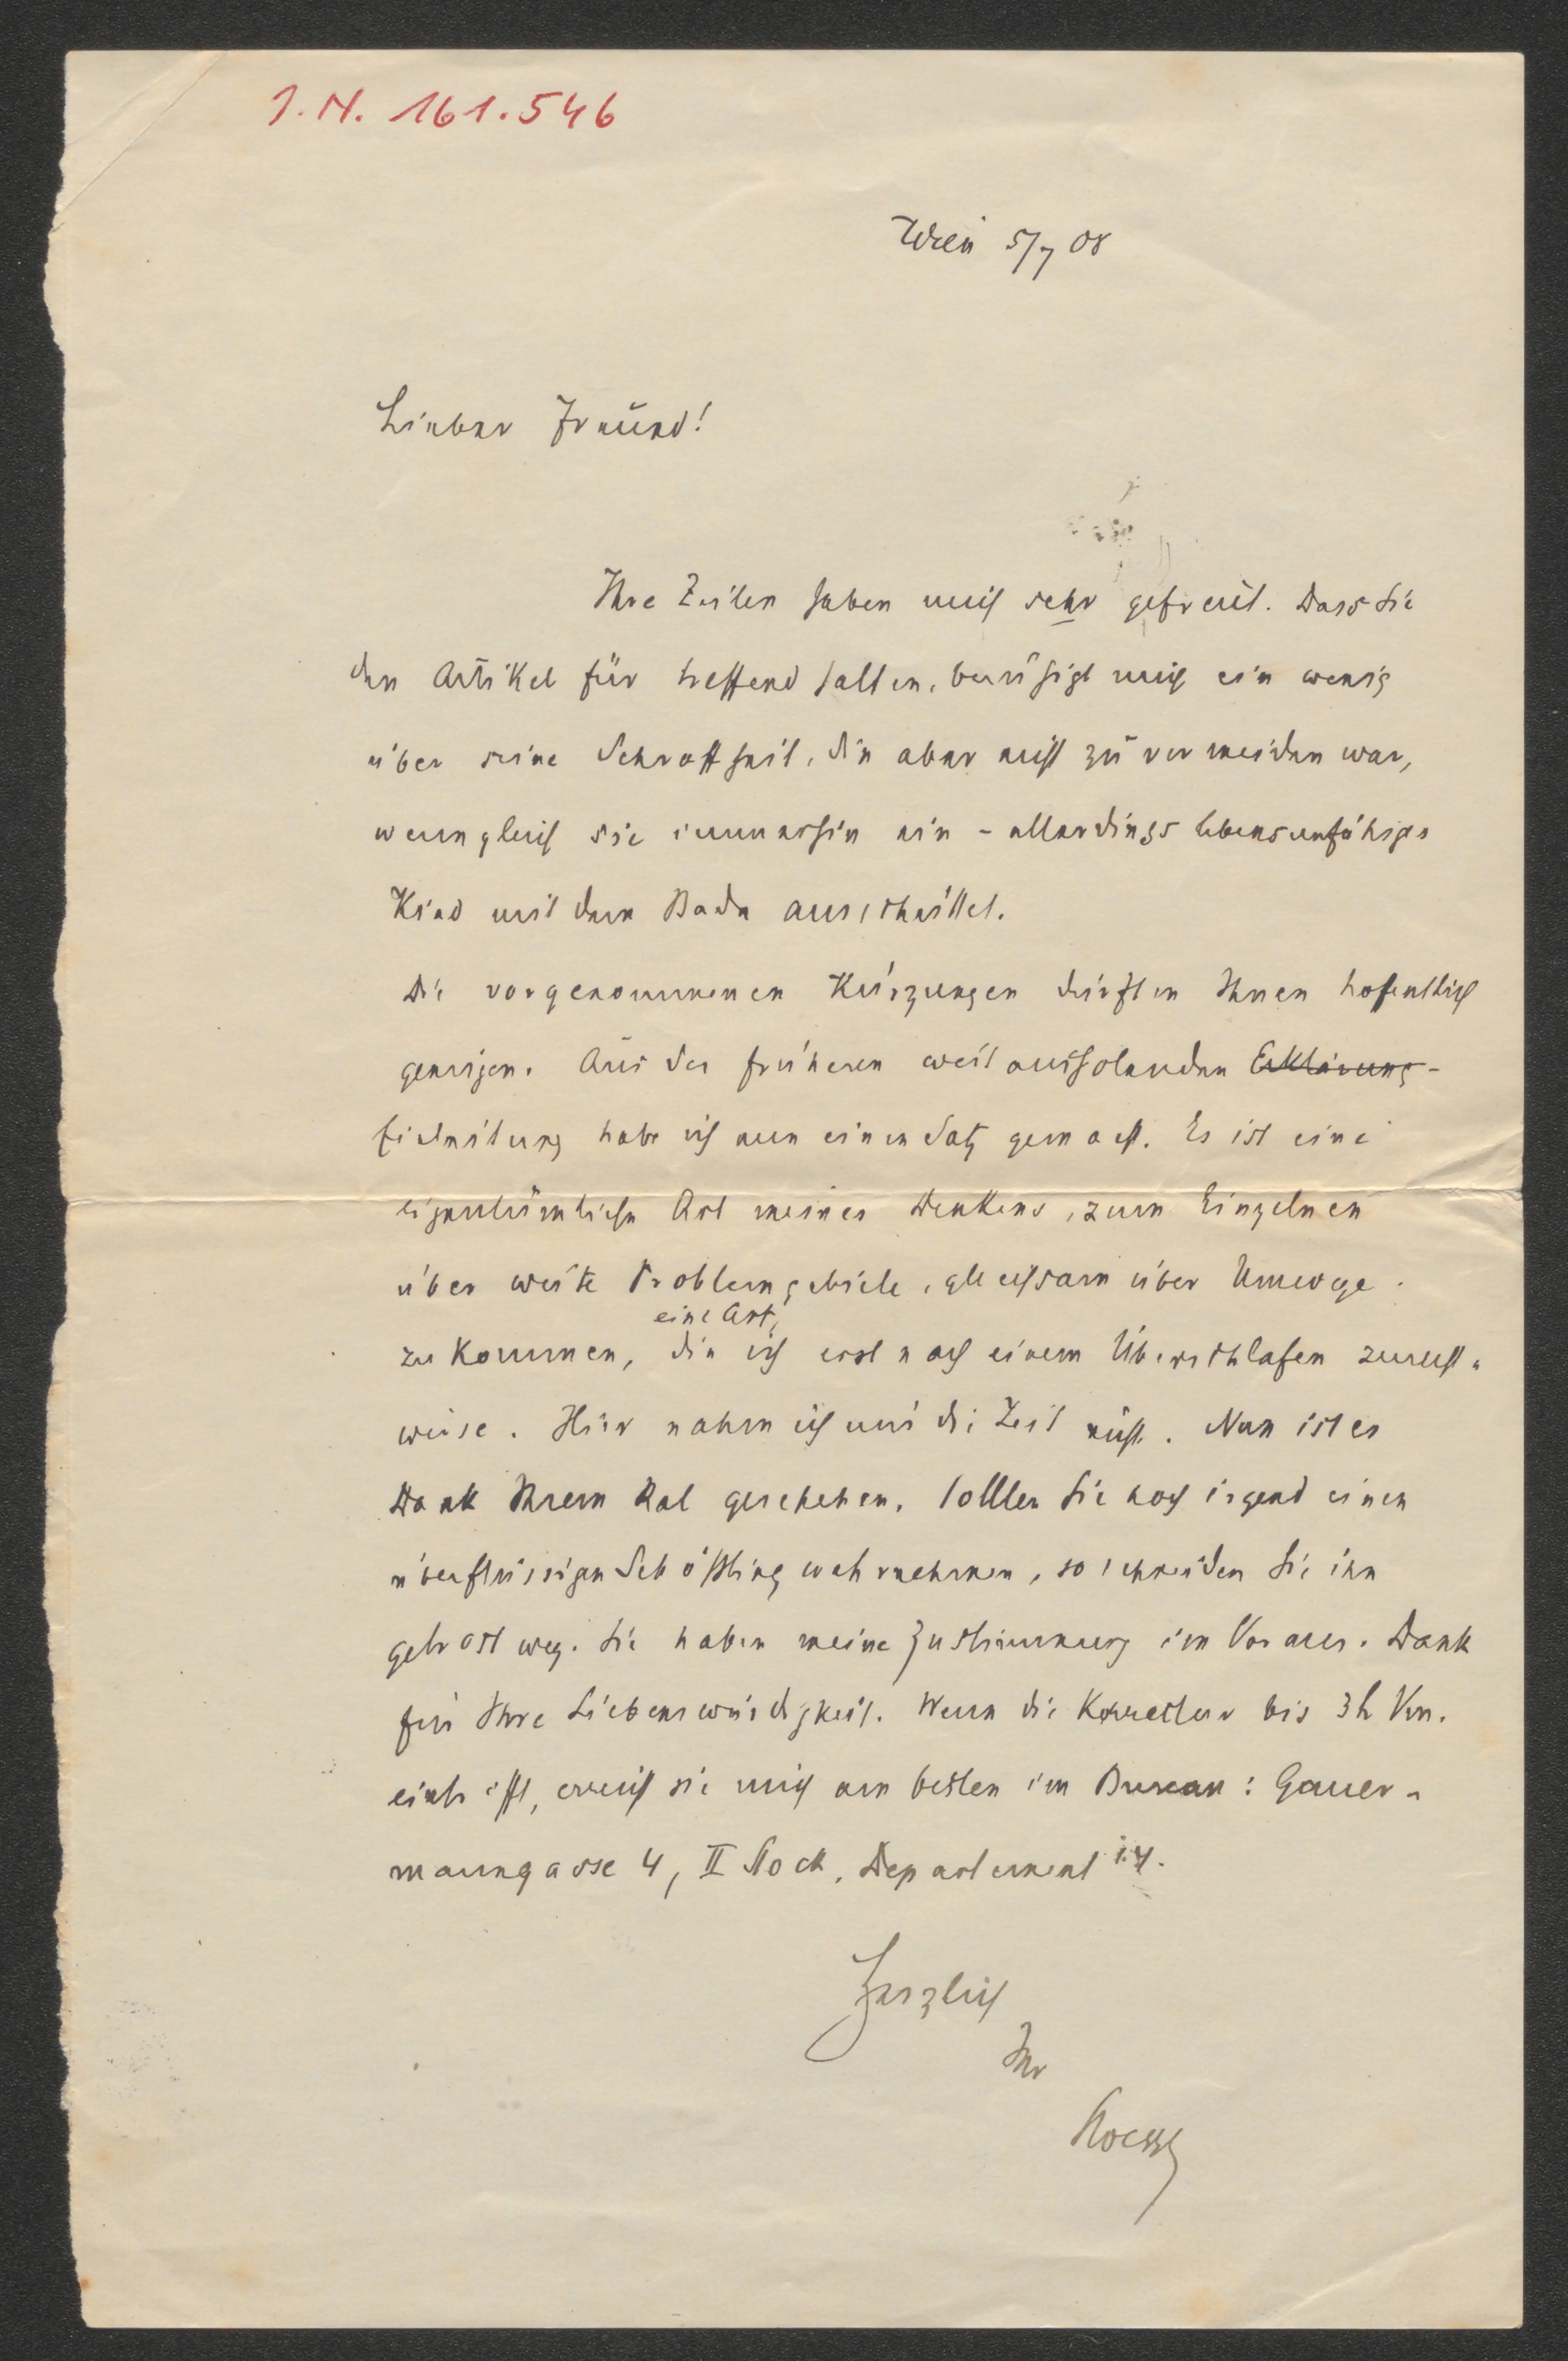 J. N. 161.546
Wien 5/7 08
Lieber Freund!
Ihre Zeilen haben mich sehr gefreut. Dass Sie
den Artikel für treffend halten, beruhigt mich ein wenig
über seine Schroffheit, die aber nicht zu vermeiden war,
wenngleich sie immerhin ein - allerdings lebensunfähiges
Kind mit dem Bade ausschüttet.
Die vorgenommenen Kürzungen dürften Ihnen hofentlich
genügen. Aus der früheren weitausholenden Erklärung-
Einleitung habe ich nun einen Satz gemacht. Es ist eine
eigentümliche Art meines Denkens, zum Einzelnen
über weite Problemgebiete, gleichsam über Umwege
eine Art,
zu kommen, die ich erst nach einem Überschlafen zurecht-
weise. Hier nahm ich mir die Zeit nicht. Nun ist es
Dank Ihrem Rat geschehen. Sollten Sie noch irgend einen
überflüssigen Schößling wahrnehmen, so schneiden Sie ihn
getrost weg. Sie haben meine Zustimmung im Voraus. Dank
für Ihre Liebenswürdigkeit. Wenn die Korrektur bis 3h Nm.
eintrifft, erreicht sie mich am besten im Bureau: Gauer-
manngasse 4, II Stock, Departement
Herzlich
Ihr
Stoessl